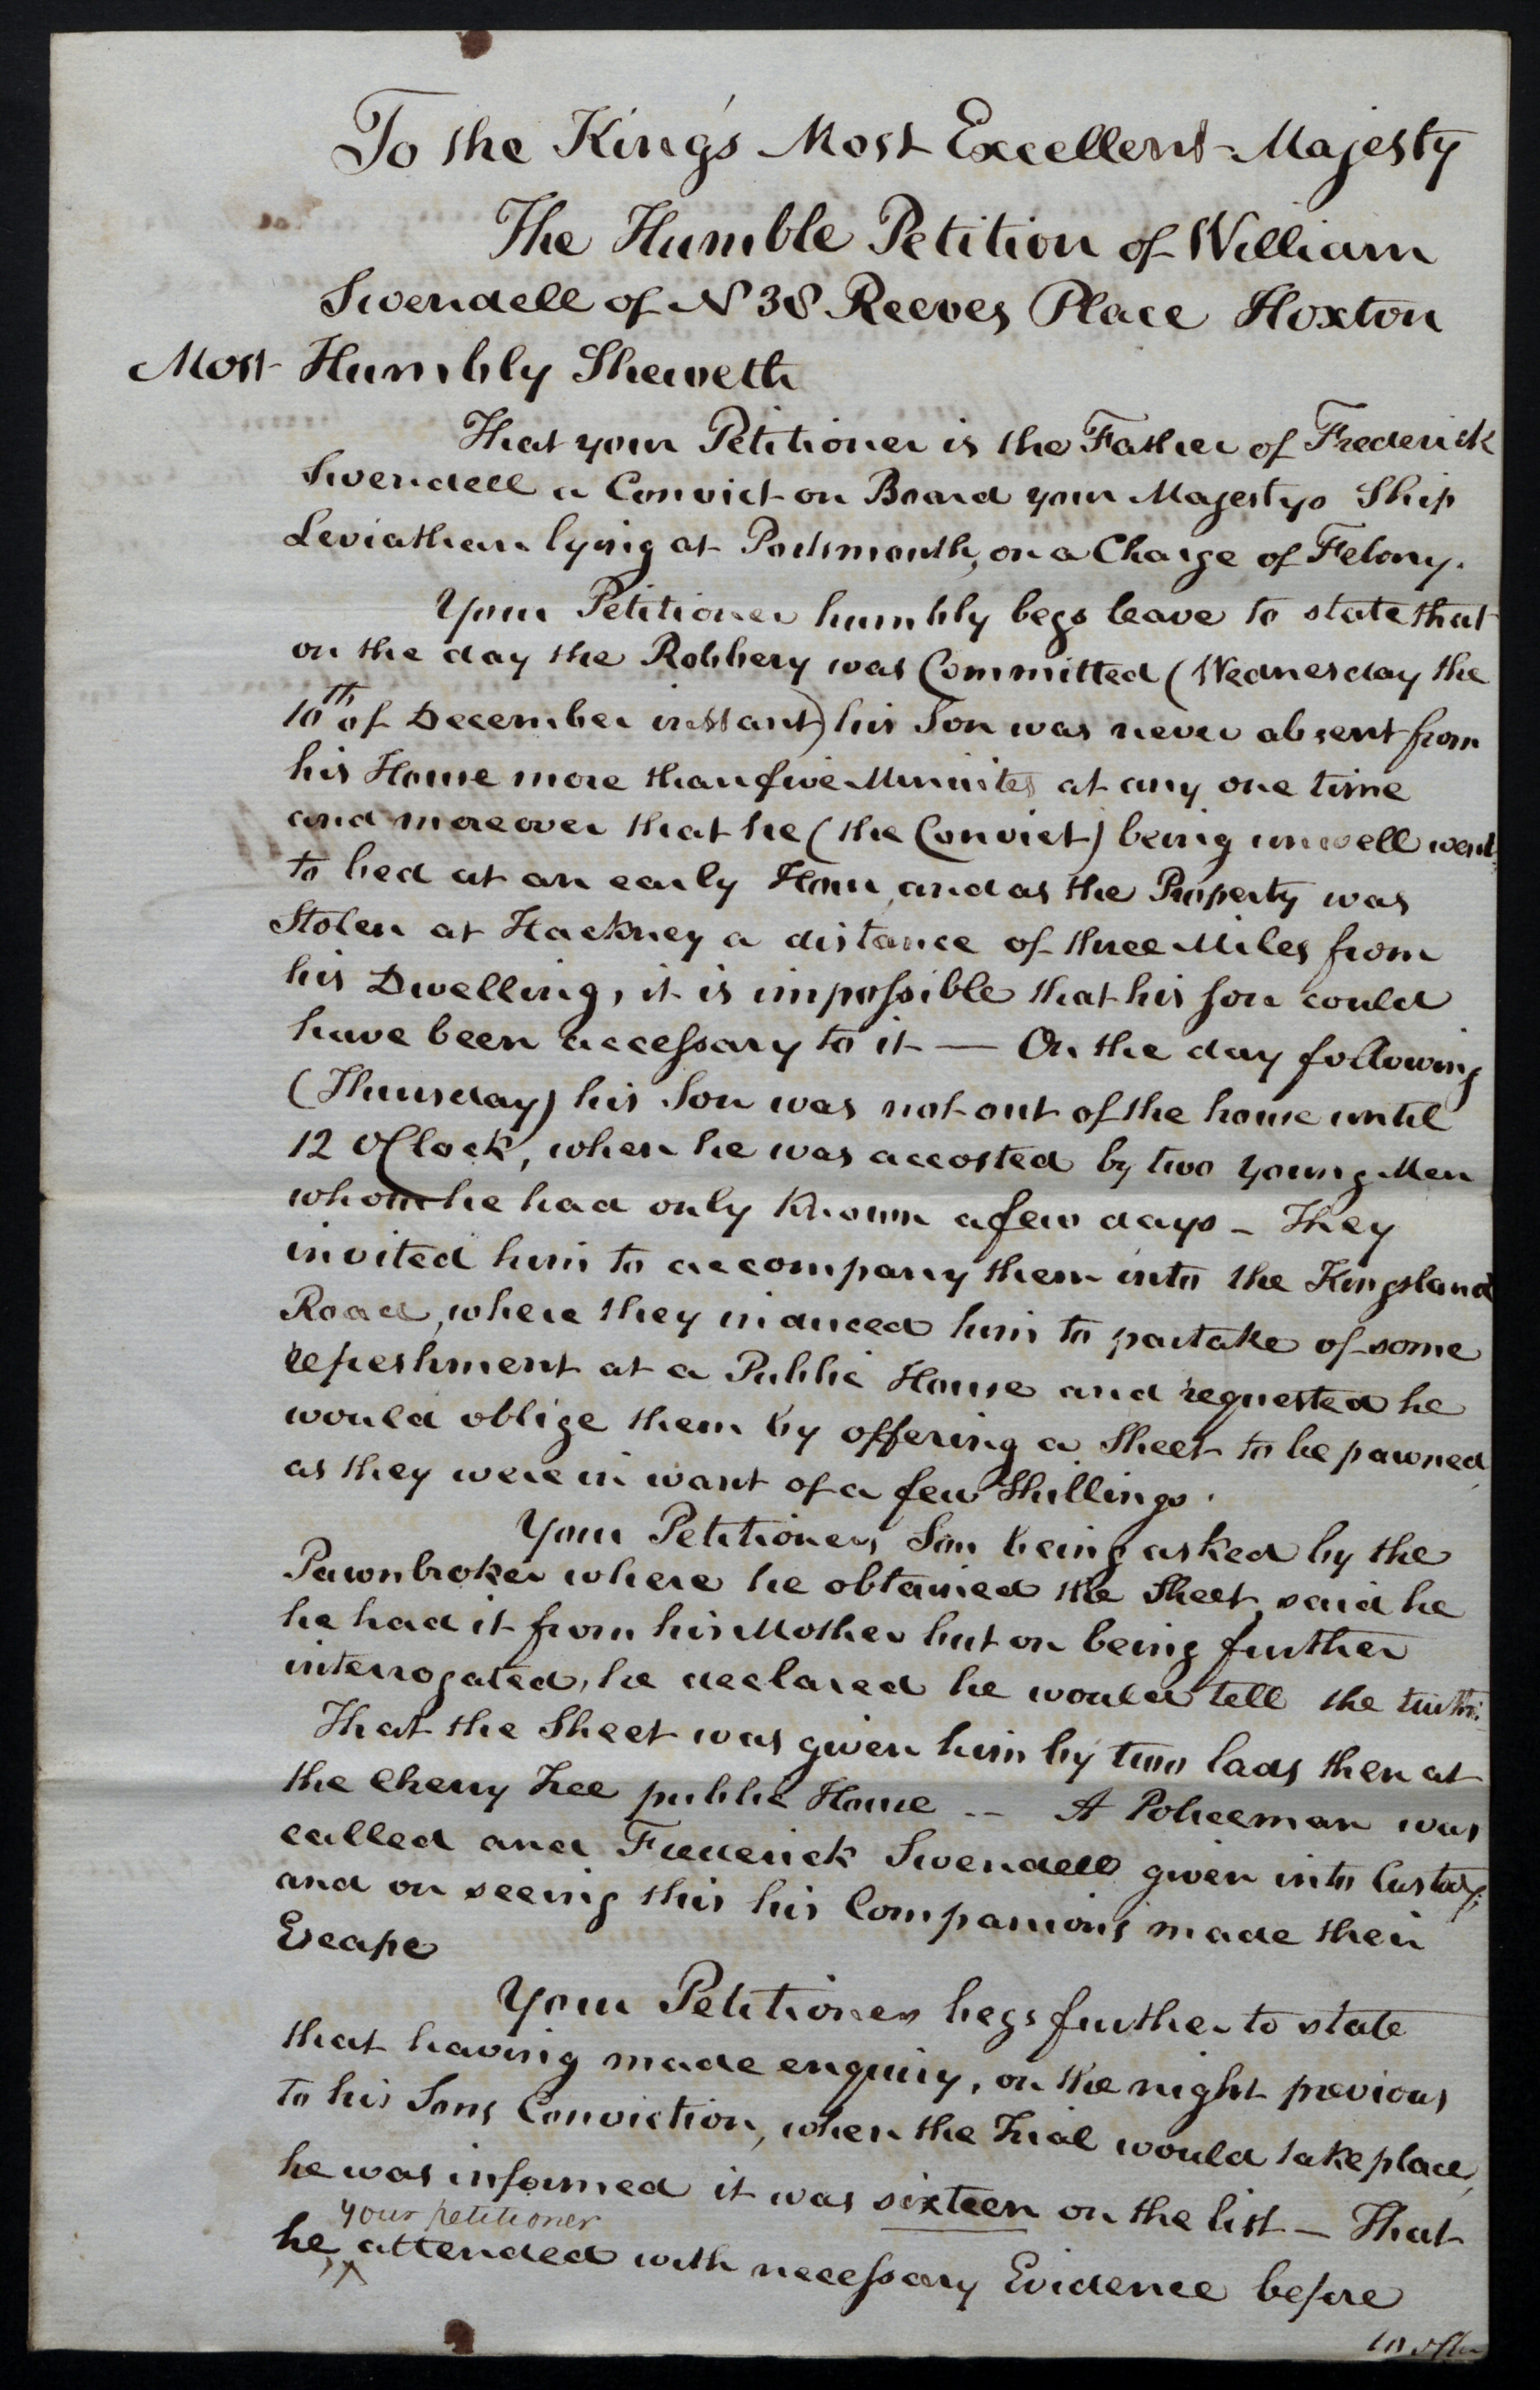 To the King's Most Excellent Majesty
The Humble Petition of William
Swendell of N 38 Reeves Place Hoxton
Most Humbly Sheweth
That your Petitioner is the Father of Frederick
Swendell a Convict on Board your Majestys Ship
Leviathan lying at Portsmouth, on a Charge of Felony.
Your Petitioner humbly begs leave to state that
on the day the Robbery was Committed (Wednesday the
10th of December instant) his Son was never absent from
his Home more than five Minutes at any one time
and moreover that he (the Convict) being unwell went
to bed at an early Hour, and as the Property was
Stolen at Hackney a distance of three Miles from
his Dwelling, it is impossible that his son could
have been accessary to it — On the day following
(Thursday) his Son was not out of the house until
12 OClock, when he was accosted by two young Men
whom he had only known a few days — They
invited him to accompany them into the Kingsland
Road, where they induced him to partake of some
refreshment at a Public House and requested he
would oblige them by offering a Sheet to be pawned
as they were in want of a few Shillings.
Your Petitioners Son being asked by the
Pawnbroker where he obtained the Sheet, said he
he had it from his Mother but on being further
interrogated, he declared he would tell the truth.
That the Sheet was given him by two lads then at
the Cherry Tree public House -- A Policeman was
called and Frederick Swendell given into Custody,
and on seeing this his Companions made their
Escape
Your Petitioner begs further to state
that having made enquiry, on the night previous
to his Sons Conviction, when the Trial would take place,
he was informed it was sixteen on the list — That
your petitioner
he ^ attended with necessary Evidence before
10